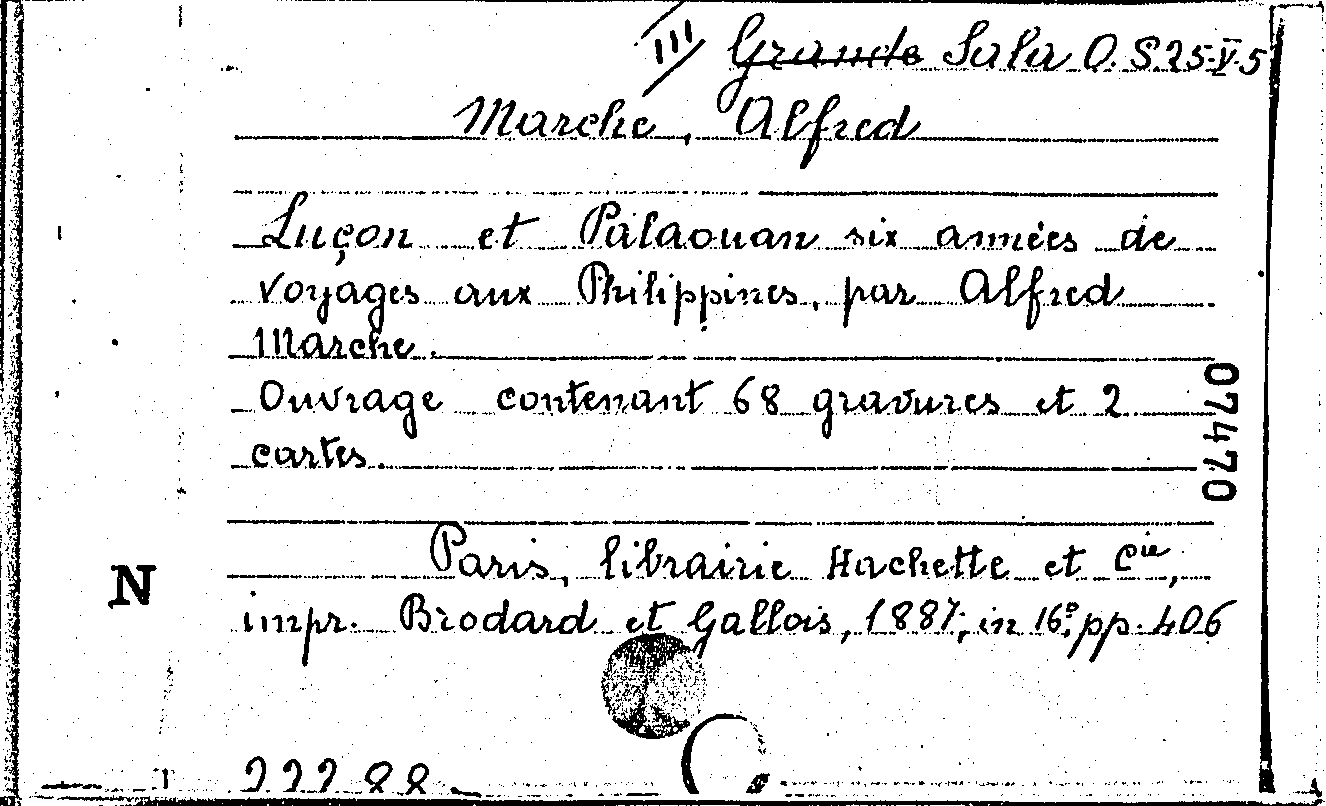 III Grande Sala O. S. 25-V-5
Marche, Alfred
Luçon et Palaouan six années de
voyages aux Philippines, par Alfred
Marche.
Ouvrage contenant 68 gravures et 2
cartes.
07470
Paris, librairie Hachette et Cie,
N
impr. Brodard et Gallois, 1887; in 16º, pp. 406